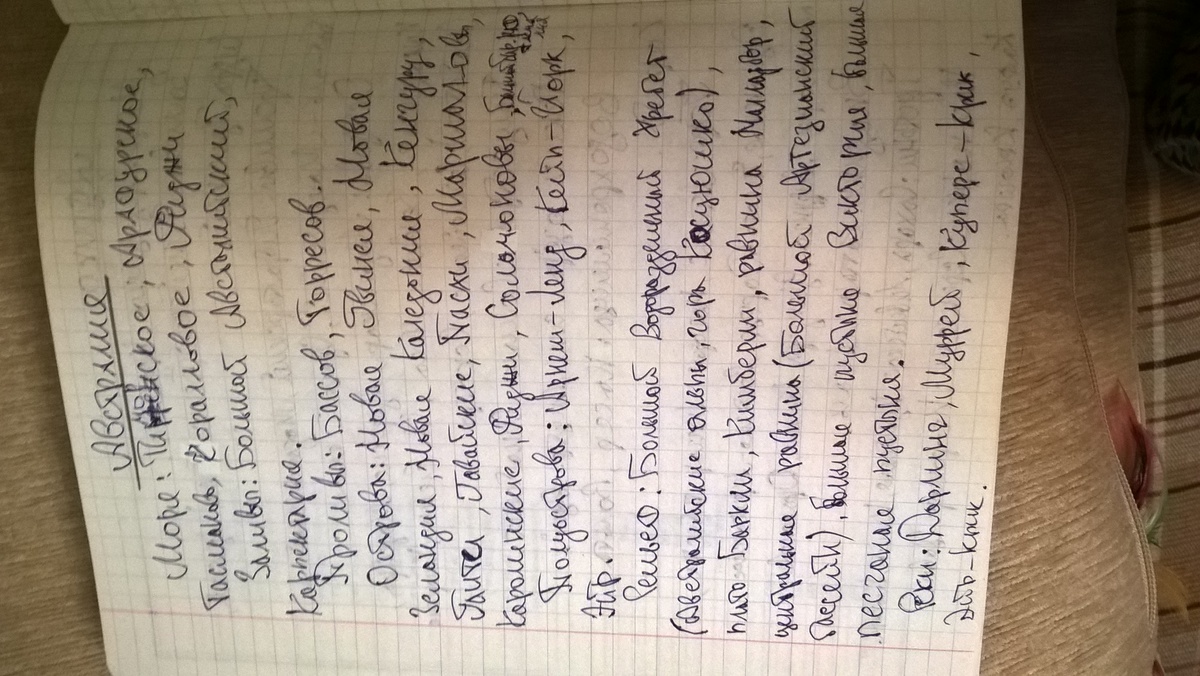 Австралия
Моря: Тиморское, Арафурское,
Тасманово, Коралловое, Фиджи
Заливы: Большой Австралийский,
Карпентария.
Проливы: Бассов, Торресов.
Острова: Новая Гвинея, Новая
Зеландия, Новая Каледония, Кенгуру,
Гавайские, Пасхи, Маршалловы,
Каролинские, Фиджи, Соломоновы,
Полуострова: Арнем-Ленд, Кейп-Йорк,
Эйр.
Рельеф: Большой Водораздельный Хребет
(Австралийские альпы, гора Косцюшко),
плато Баркли, Кимберли, равнина Налларбор,
центральная равнина (Большой Артезианский
Бассейн), Большая пустыня Виктория, Большая
песчаная пустыня.
Реки: Дарлинг, Муррей, Куперс-Крик,